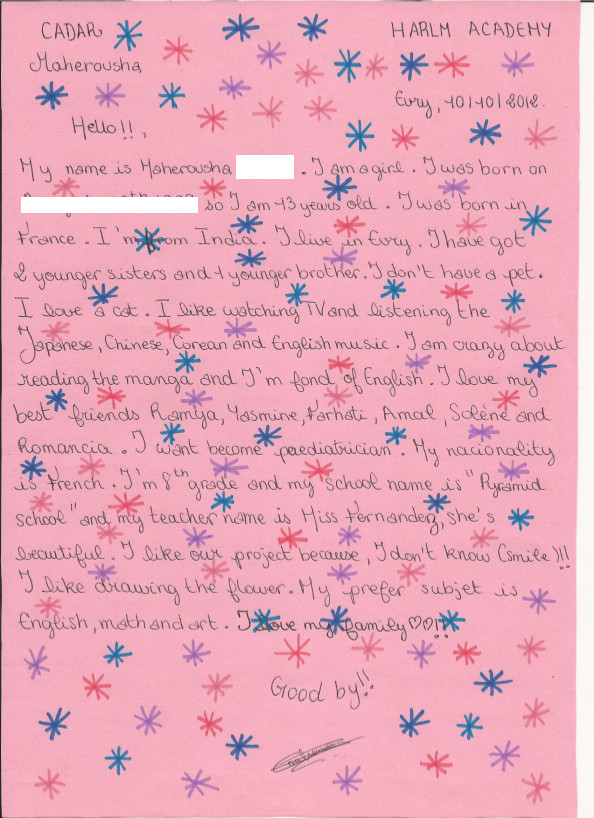 CADAR
HARLM ACADEMY
Maherousha
Evry, 10/10/2012.
Hello!!,
My name is Maherousha . I am a girl. I was born on
so I am 13 years old. I was born in
France. I'm from India. I live in Evry. I have got
2 younger sisters and 1 younger brother. I don't have a pet.
I love a cat. I like watching TV and listening the
Japonese, Chinese, Corean and English music. I am crazy about
reading the manga and I'm fond of English. I love my
best friends Ramya, Yasmine, Amal, Solène and
Romancia. I want become paediatrician. My nacionality
is French. I'm 8th grade and my school name is "Pyramid
school" and my teacher name is Miss Fernandez, she's
beautiful. I like our project because, I don't know (smile)!!
I like drawing the flower. My prefer subjet is
English, math and art. I love my family♡♡!!
Good by!!